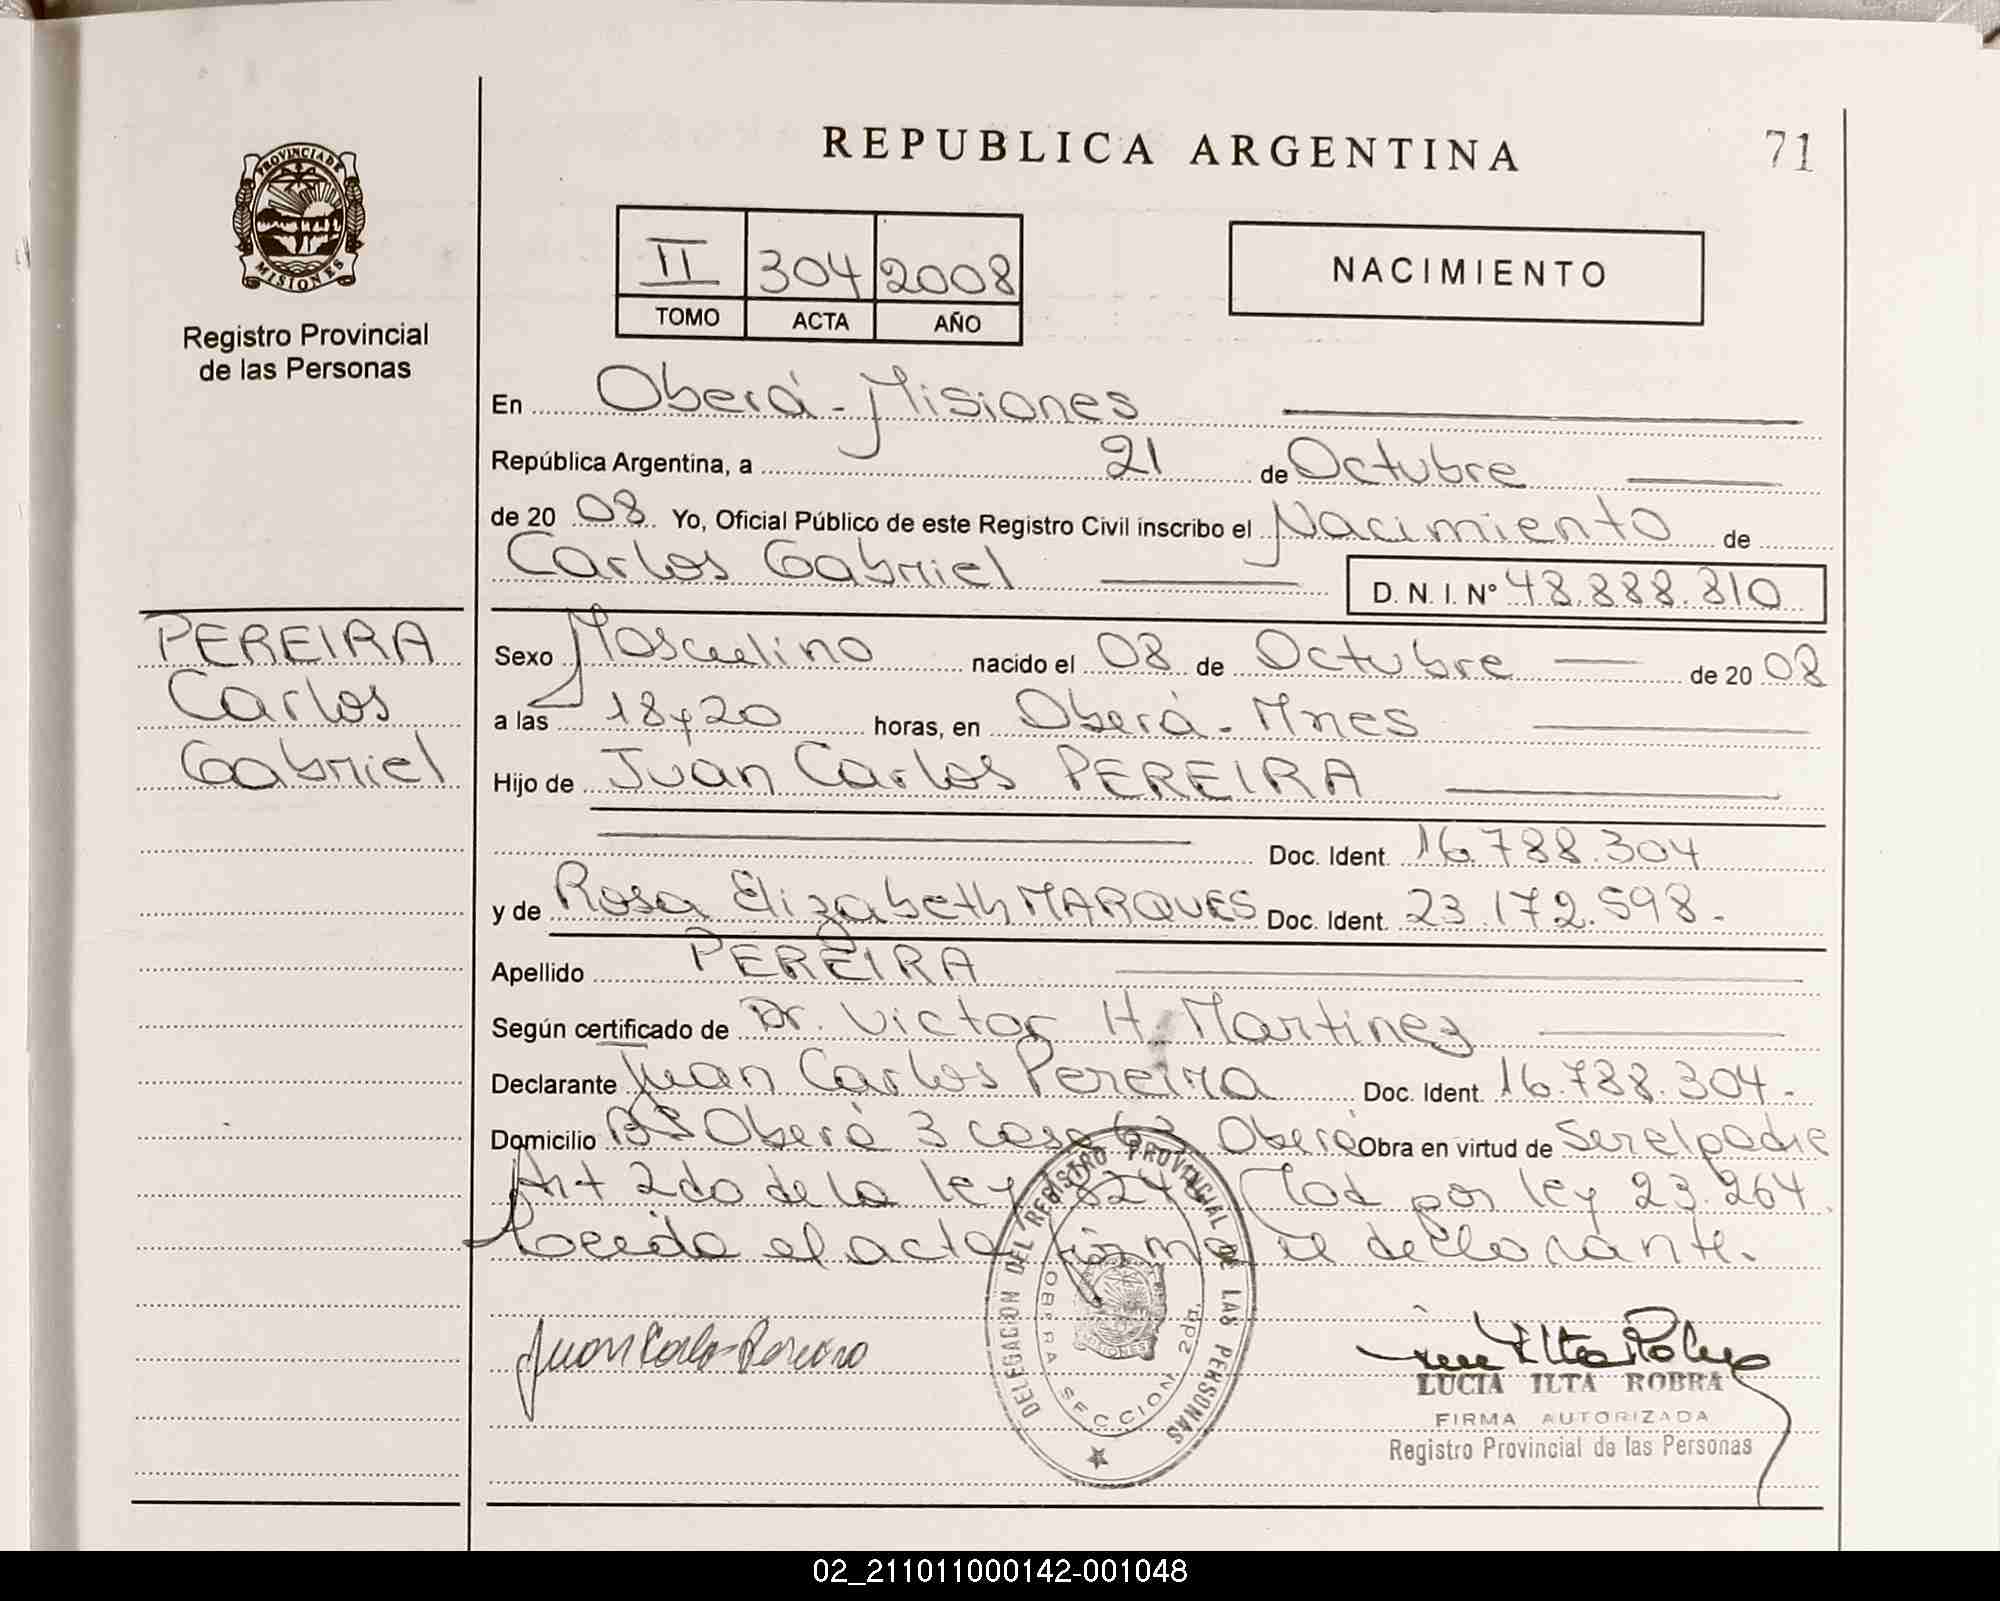 REPUBLICA ARGENTINA
71
PROVINCIA DE
MISIONES
Registro Provincial
de las Personas
II 304 2008
TOMO ACTA AÑO
NACIMIENTO
En Oberá - Misiones
República Argentina, a 21 de Octubre
de 20 08 Yo, Oficial Público de este Registro Civil inscribo el Nacimiento de
Carlos Gabriel D. N. I. Nº 48.888.810
PEREIRA
Carlos
Gabriel
Sexo Masculino nacido el 08 de Octubre de 20 08
a las 18 y 20 horas, en Oberá - Mnes
Hijo de Juan Carlos PEREIRA
Doc. Ident. 16.788.304
y de Rosa Elizabeth MARQUES Doc. Ident. 23.172.598.-
Apellido PEREIRA
Según certificado de Dr. Victor H. Martinez
Declarante Juan Carlos Pereira Doc. Ident. 16.788.304.-
Domicilio Oberá 3 casa 63 Oberá Obra en virtud de Ser el padre
Art 2do de la ley 18248 Mod por ley 23.264.
el acta firma el declarante.
Juan Carlos Pereira
DELEGACION DEL REGISTRO PROVINCIAL DE LAS PERSONAS
OBERA SECCION 2da.
MISIONES
LUCIA ILTA ROBRA
FIRMA AUTORIZADA
Registro Provincial de las Personas
02_211011000142-001048